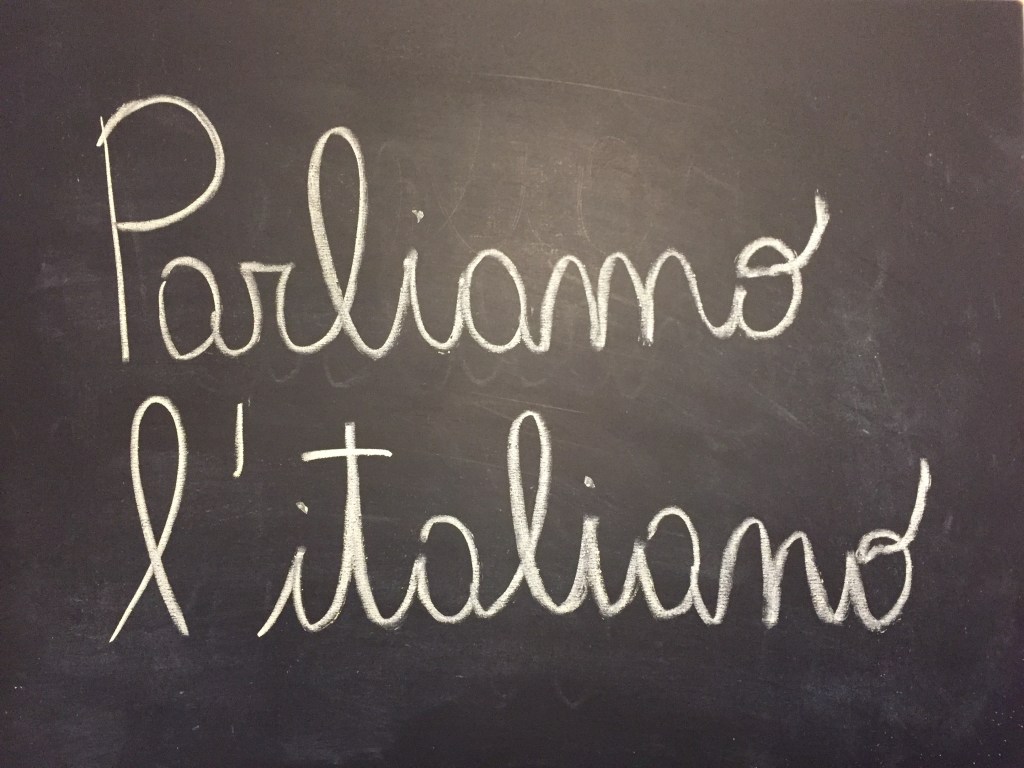 Parliamo
l'italiano